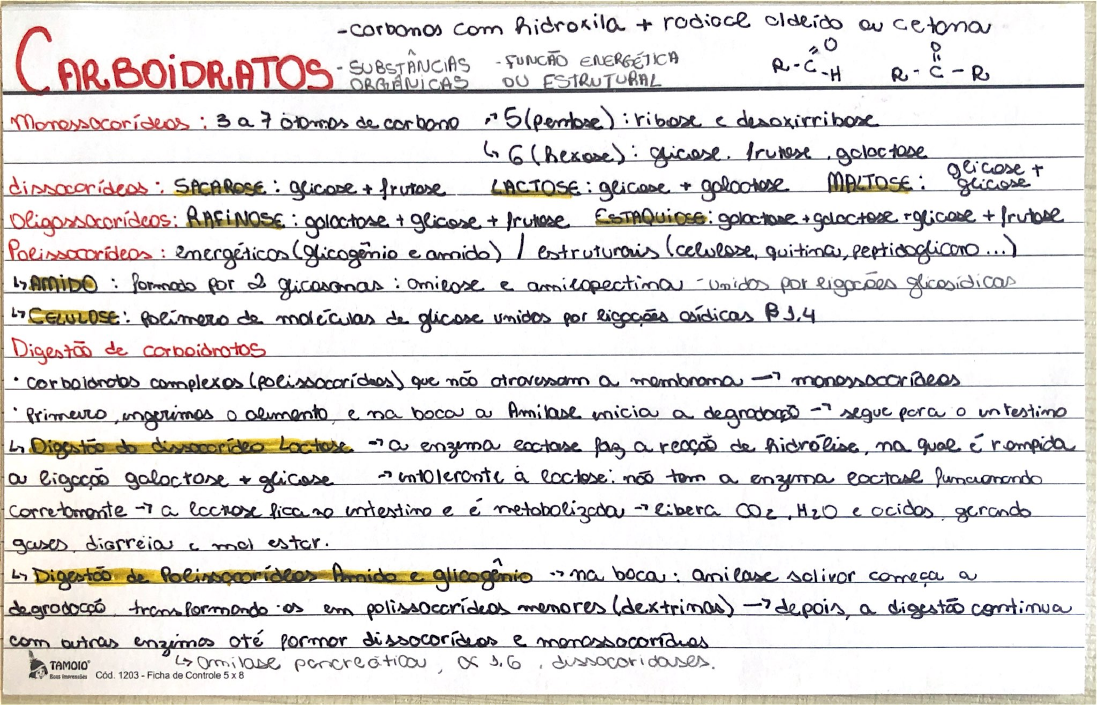 -carbonos com hidroxila + radical aldeído ou cetona
CARBOIDRATOS
-SUBSTÂNCIAS ORGÂNICAS
-FUNÇÃO ENERGÉTICA OU ESTRUTURAL
R-C=O-H
R-C=O-R
Monossacarídeos: 3 a 7 átomos de carbono ↗ 5(pentose): ribose e desoxirribose
↳ 6(hexose): glicose, frutose, galactose
dissacarídeos: SACAROSE: glicose + frutose LACTOSE: glicose + galactose MALTOSE: glicose + glicose
Oligossacarídeos: RAFINOSE: galactose + glicose + frutose ESTAQUIOSE: galactose + galactose + glicose + frutose
Polissacarídeos: energéticos (glicogênio e amido) / estruturais (celulose, quitina, peptidoglicano...)
↳ AMIDO: formado por 2 glicosanas: amilose e amilopectina - unidos por ligações glicosídicas
↳ CELULOSE: polímero de moléculas de glicose unidos por ligações osídicas β 1,4
Digestão de carboidratos
• carboidratos complexos (polissacarídeos) que não atravessam a membrana → monossacarídeos
• Primeiro, ingerimos o alimento, e na boca a Amilase inicia a degradação → segue para o intestino
↳ Digestão do dissacarídeo Lactose → a enzima lactase faz a reação de hidrólise, na qual é rompida
a ligação galactose + glicose → intolerante à lactose: não tem a enzima lactase funcionando
corretamente → a lactose fica no intestino e é metabolizada → libera CO2, H2O e ácidos, gerando
gases, diarréia e mal estar.
↳ Digestão de Polissacarídeos Amido e glicogênio → na boca: amilase salivar começa a
degradação, transformando-os em polissacarídeos menores (dextrinas) → depois, a digestão continua
com outras enzimas até formar dissacarídeos e monossacarídeos
↳ amilase pancreática, α 1,6, dissacaridases.
TAMOIO®
Boas Impressões
Cód. 1203 - Ficha de Controle 5 x 8